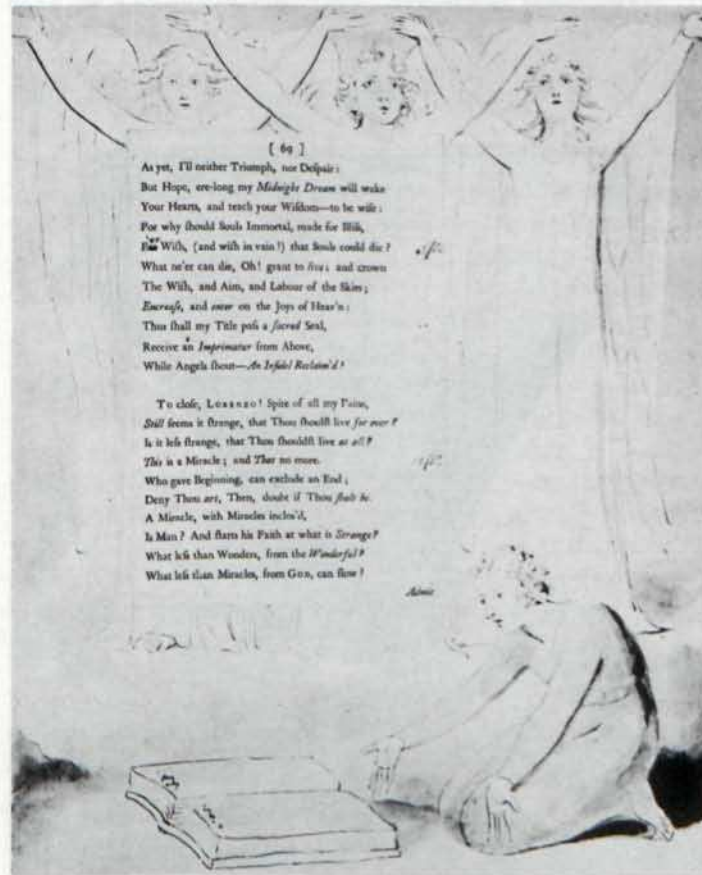 [ 69 ]
As yet, I'll neither Triumph, nor Deſpair:
But Hope, ere-long my Midnight Dream will wake
Your Hearts, and teach your Wiſdom—to be wiſe:
For why ſhould Souls Immortal, made for Bliſs,
Wiſh, (and wiſh in vain!) that Souls could die?
What ne'er can die, Oh! grant to live; and crown
The Wiſh, and Aim, and Labour of the Skies;
Encreaſe, and enter on the Joys of Heav'n:
Thus ſhall my Title paſs a ſacred Seal,
Receive an Imprimatur from Above,
While Angels ſhout—An Infidel Reclaim'd!
To cloſe, LORENZO! Spite of all my Pains,
Still ſeems it ſtrange, that Thou ſhouldſt live for ever?
Is it leſs ſtrange, that Thou ſhouldſt live at all?
This is a Miracle; and That no more.
Who gave Beginning, can exclude an End;
Deny Thou art, Then, doubt if Thou ſhalt be.
A Miracle, with Miracles inclos'd,
Is Man? And ſtarts his Faith at what is Strange?
What leſs than Wonders, from the Wonderful?
What leſs than Miracles, from GOD, can flow?
Admit